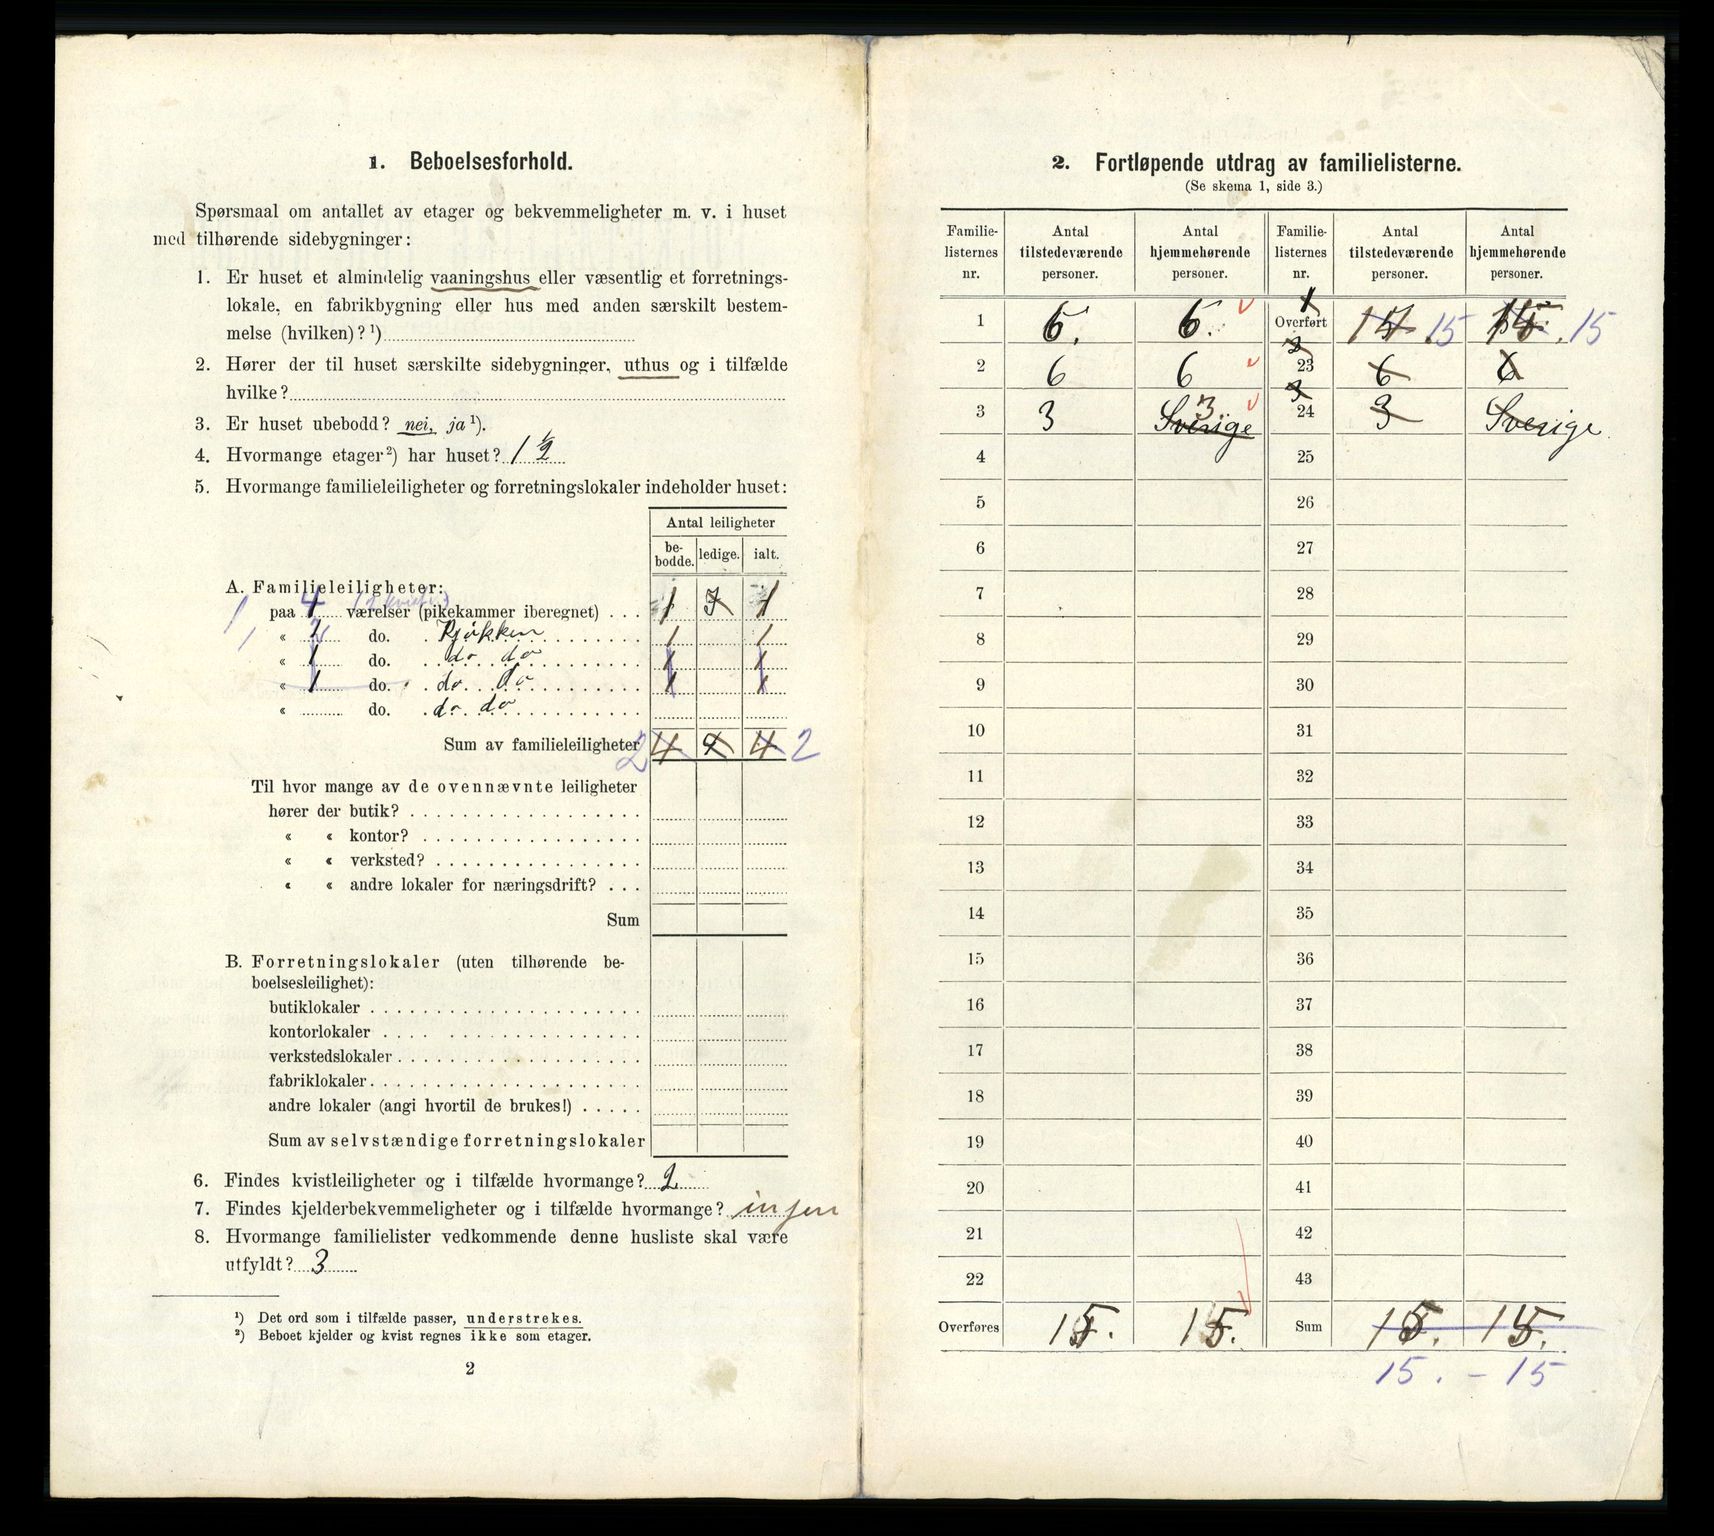 1. Beboelsesforhold.
Spørsmaal om antallet av etager og bekvemmeligheter m. v. i huset
med tilhørende sidebygninger:
1. Er huset et almindelig vaaningshus eller væsentlig et forretnings-
lokale, en fabrikbygning eller hus med anden særskilt bestem-
melse (hvilken)? ¹)
2. Hører der til huset særskilte sidebygninger, uthus og i tilfælde
hvilke?
3. Er huset ubebodd? nei, ja ¹).
4. Hvormange etager ²) har huset? 1 ½
5. Hvormange familieleiligheter og forretningslokaler indeholder huset:
Antal leiligheter
be-
bodde. ledige. ialt.
A. Familieleiligheter:
1 paa 4 værelser (pikekammer iberegnet) . . . 1 3 1
1 « 2 do. Kjøkken 1 1
« 1 do. do do 1 1
« 1 do. do. do 1 1
« do. do. do
Sum av familieleiligheter 2 4 4 2
Til hvor mange av de ovennævnte leiligheter
hører der butik?
« « kontor?
« « verksted?
« « andre lokaler for næringsdrift? . . .
Sum
B. Forretningslokaler (uten tilhørende be-
boelsesleilighet):
butiklokaler
kontorlokaler
verkstedslokaler
fabriklokaler
andre lokaler (angi hvortil de brukes!)
Sum av selvstændige forretningslokaler
6. Findes kvistleiligheter og i tilfælde hvormange? 2
7. Findes kjelderbekvemmeligheter og i tilfælde hvormange? injen
8. Hvormange familielister vedkommende denne husliste skal være
utfyldt? 3
¹) Det ord som i tilfælde passer, understrekes.
²) Beboet kjelder og kvist regnes ikke som etager.
2
2. Fortløpende utdrag av familielisterne.
(Se skema 1, side 3.)
Familie-
listernes
nr. Antal
tilstedeværende
personer. Antal
hjemmehørende
personer. Familie-
listernes
nr. Antal
tilstedeværende
personer. Antal
hjemmehørende
personer.
1 6. 6. 1 Overført 14 15 15. 15
2 6 6 2 23 6 6
3 3 3. Sverige 3 24 3 Sverige
4 25
5 26
6 27
7 28
8 29
9 30
10 31
11 32
12 33
13 34
14 35
15 36
16 37
17 38
18 39
19 40
20 41
21 42
22 43
Overføres 15. 15. Sum 15. 15.
15. - 15